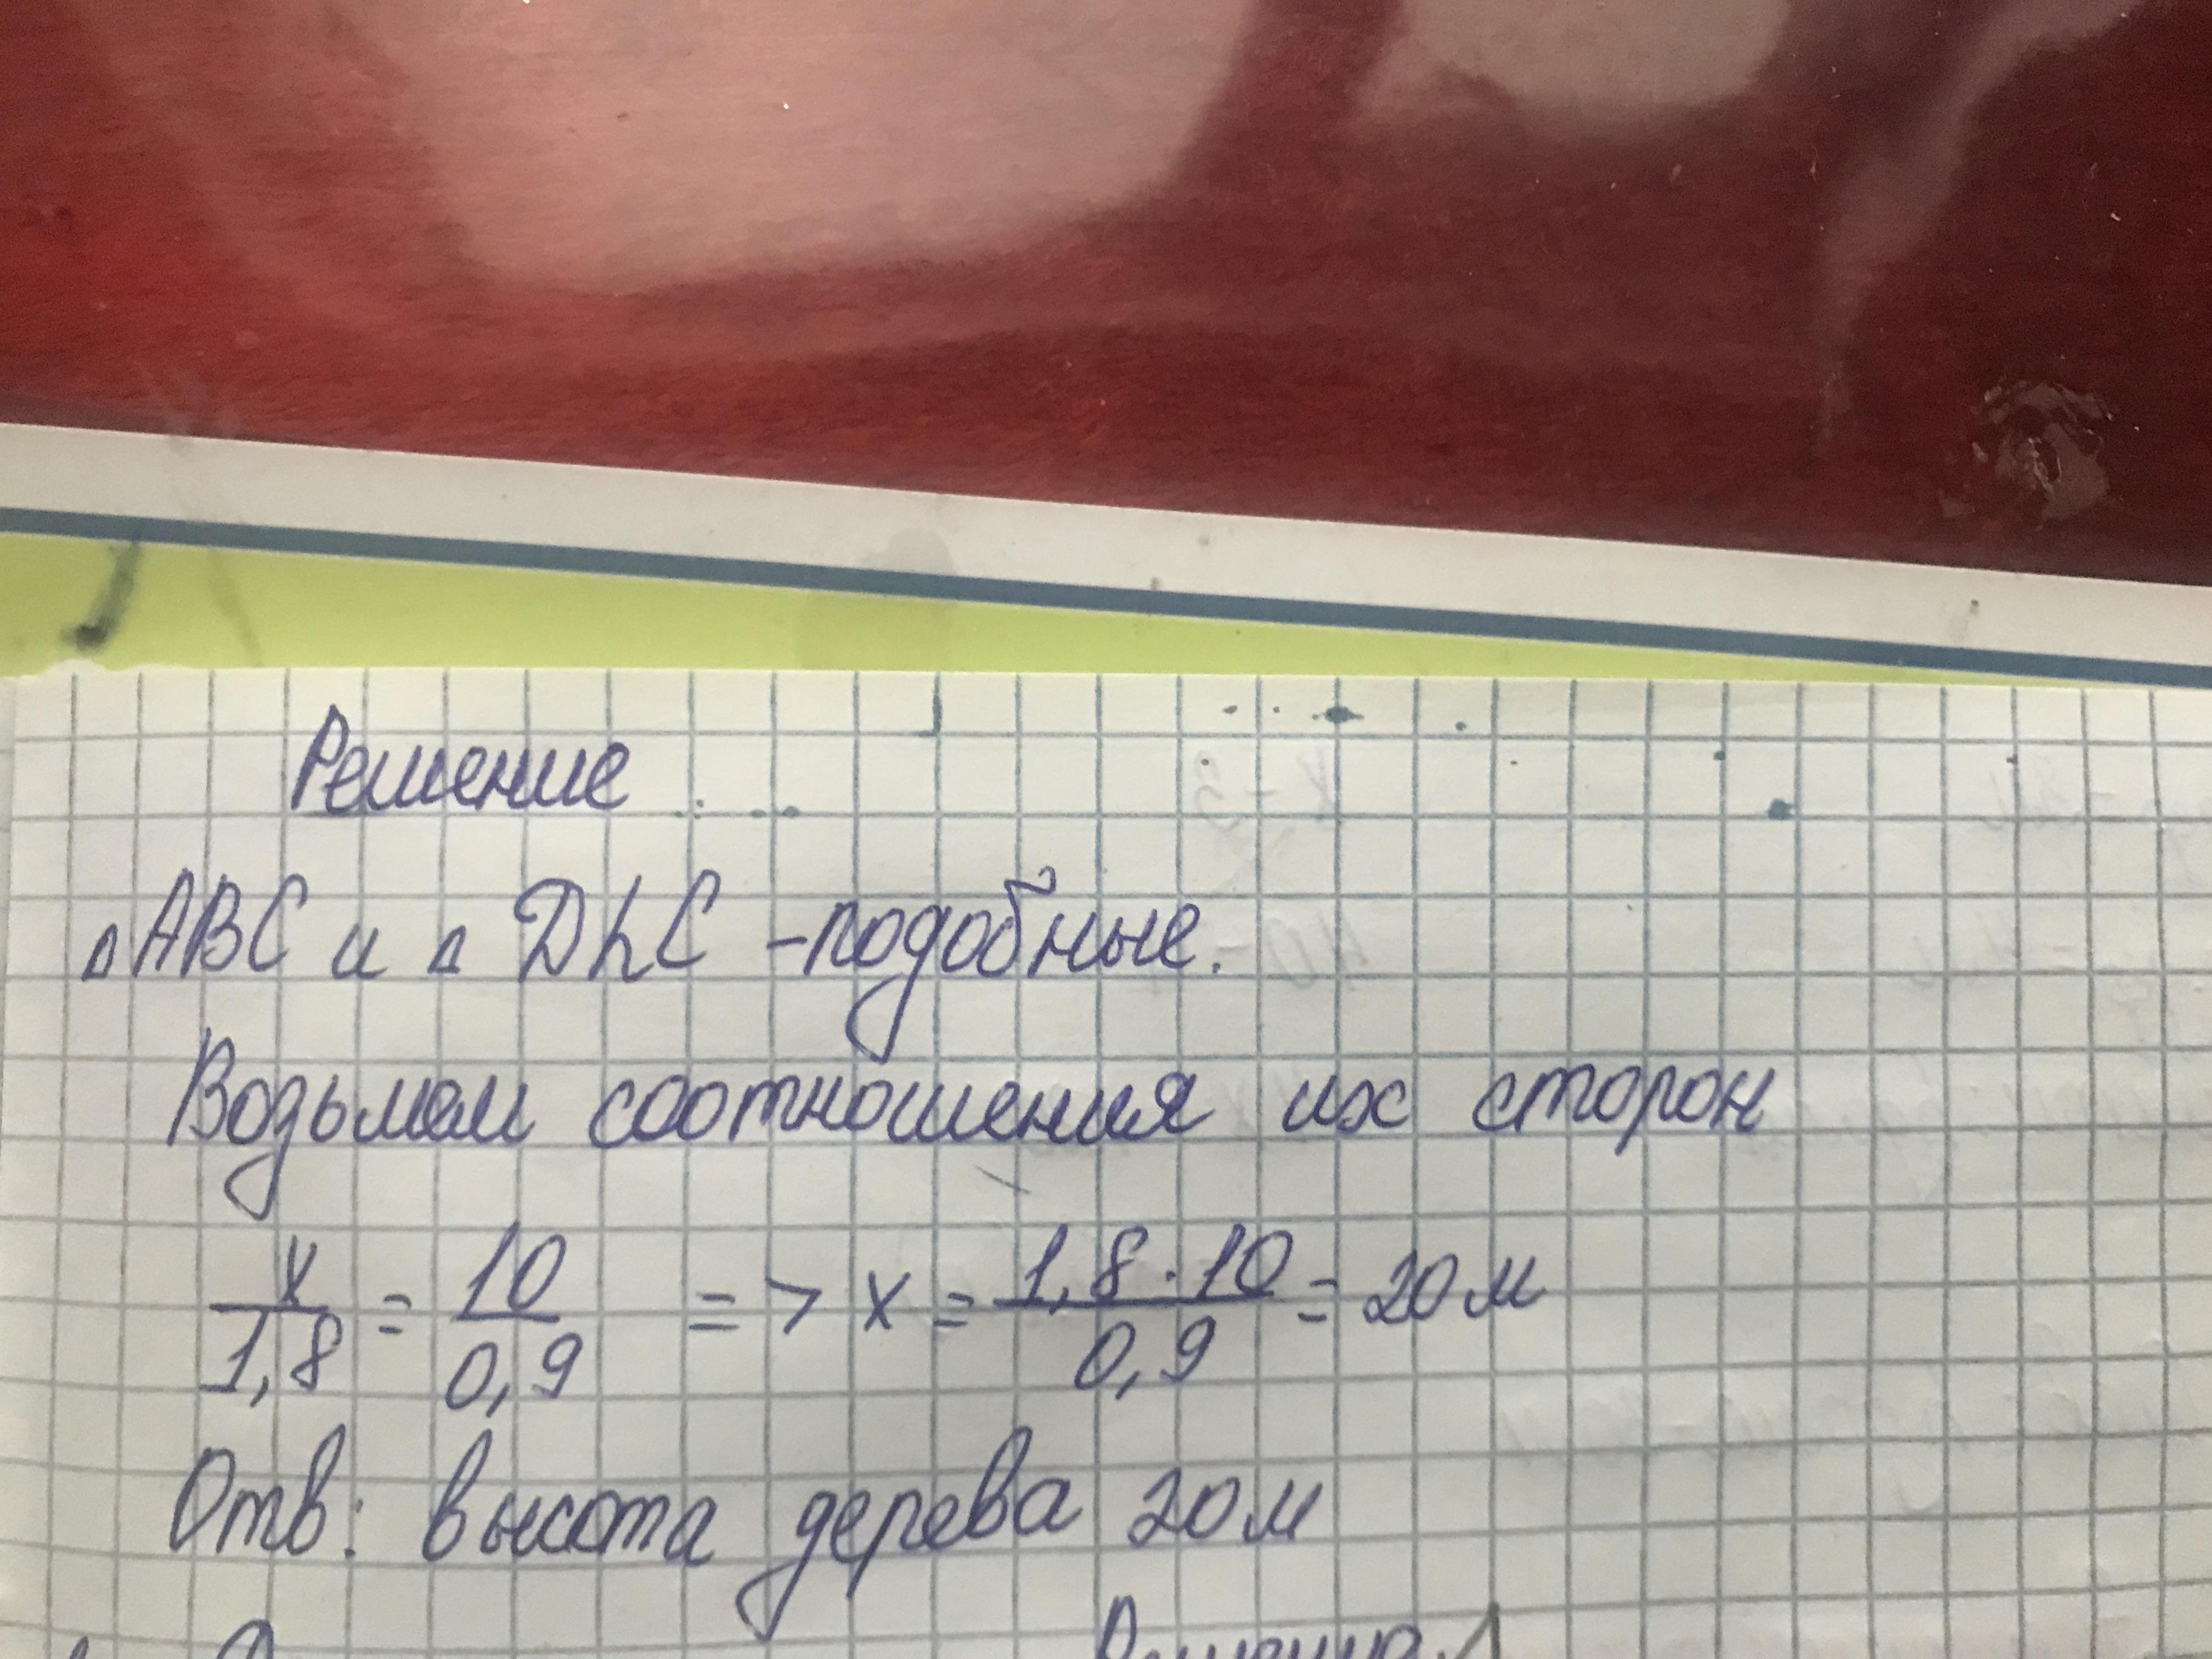 Решение
△ABC и △DhC - подобные.
Возьмем соотношения их сторон
x/1,8 = 10/0,9 => x = 1,8·10/0,9 = 20 м
Отв: высота дерева 20 м